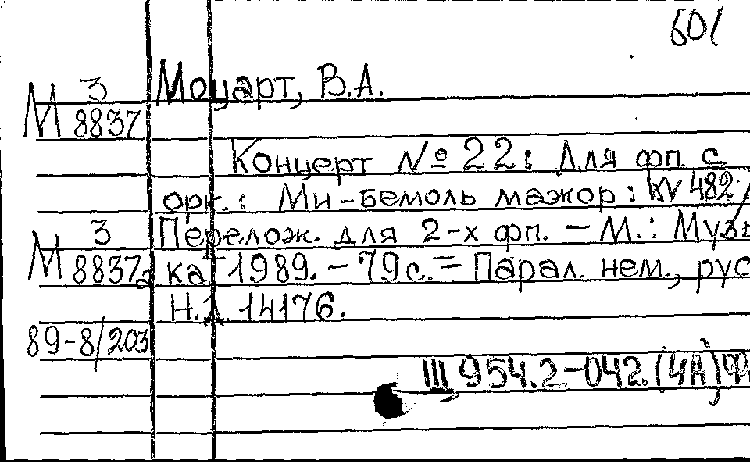 601
Моцарт, В.А.
М 3
8837
Концерт № 22: Для фп. с
орк.: Ми-бемоль мажор: KV 482/
Перелож. для 2-х фп. - М.: Музы
М 3
8837а
ка, 1989. - 79с. = Парал. нем., рус
Н.д. 14176.
89-8/203
Щ 954.2-042.(4А),Ф